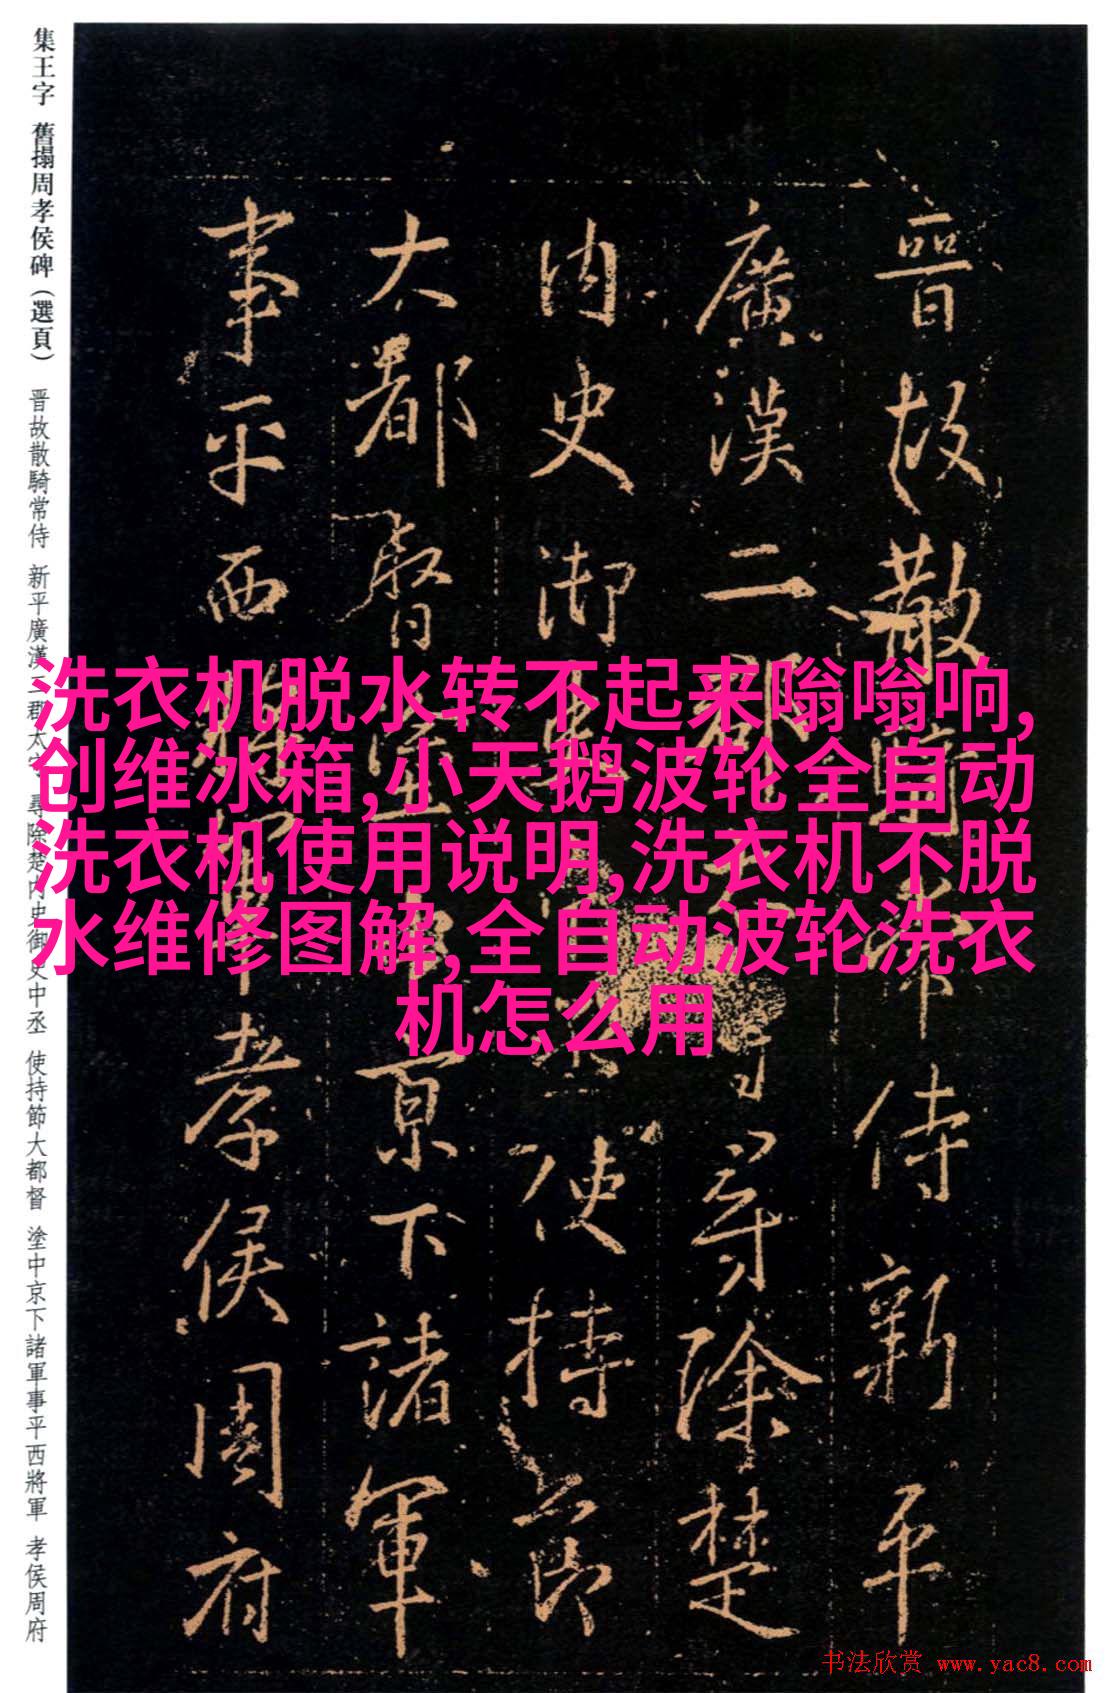 集王字 舊搨周孝侯碑（選頁） 晋故散騎常侍 新平廣漢二郡太守 尋除楚内史御史中丞 使持節大都督 塗中京下諸軍事平西將軍 孝侯周府
晉故散騎常侍新平
廣漢二郡太守尋除楚
内史御史中丞使持節
大都督塗中京下諸軍
事平西將軍孝侯周府
洗衣机脱水转不起来嗡嗡响,
创维冰箱,小天鹅波轮全自动
洗衣机使用说明,洗衣机不脱
水维修图解,全自动波轮洗衣
机怎么用
书法欣赏 www.yac8.com